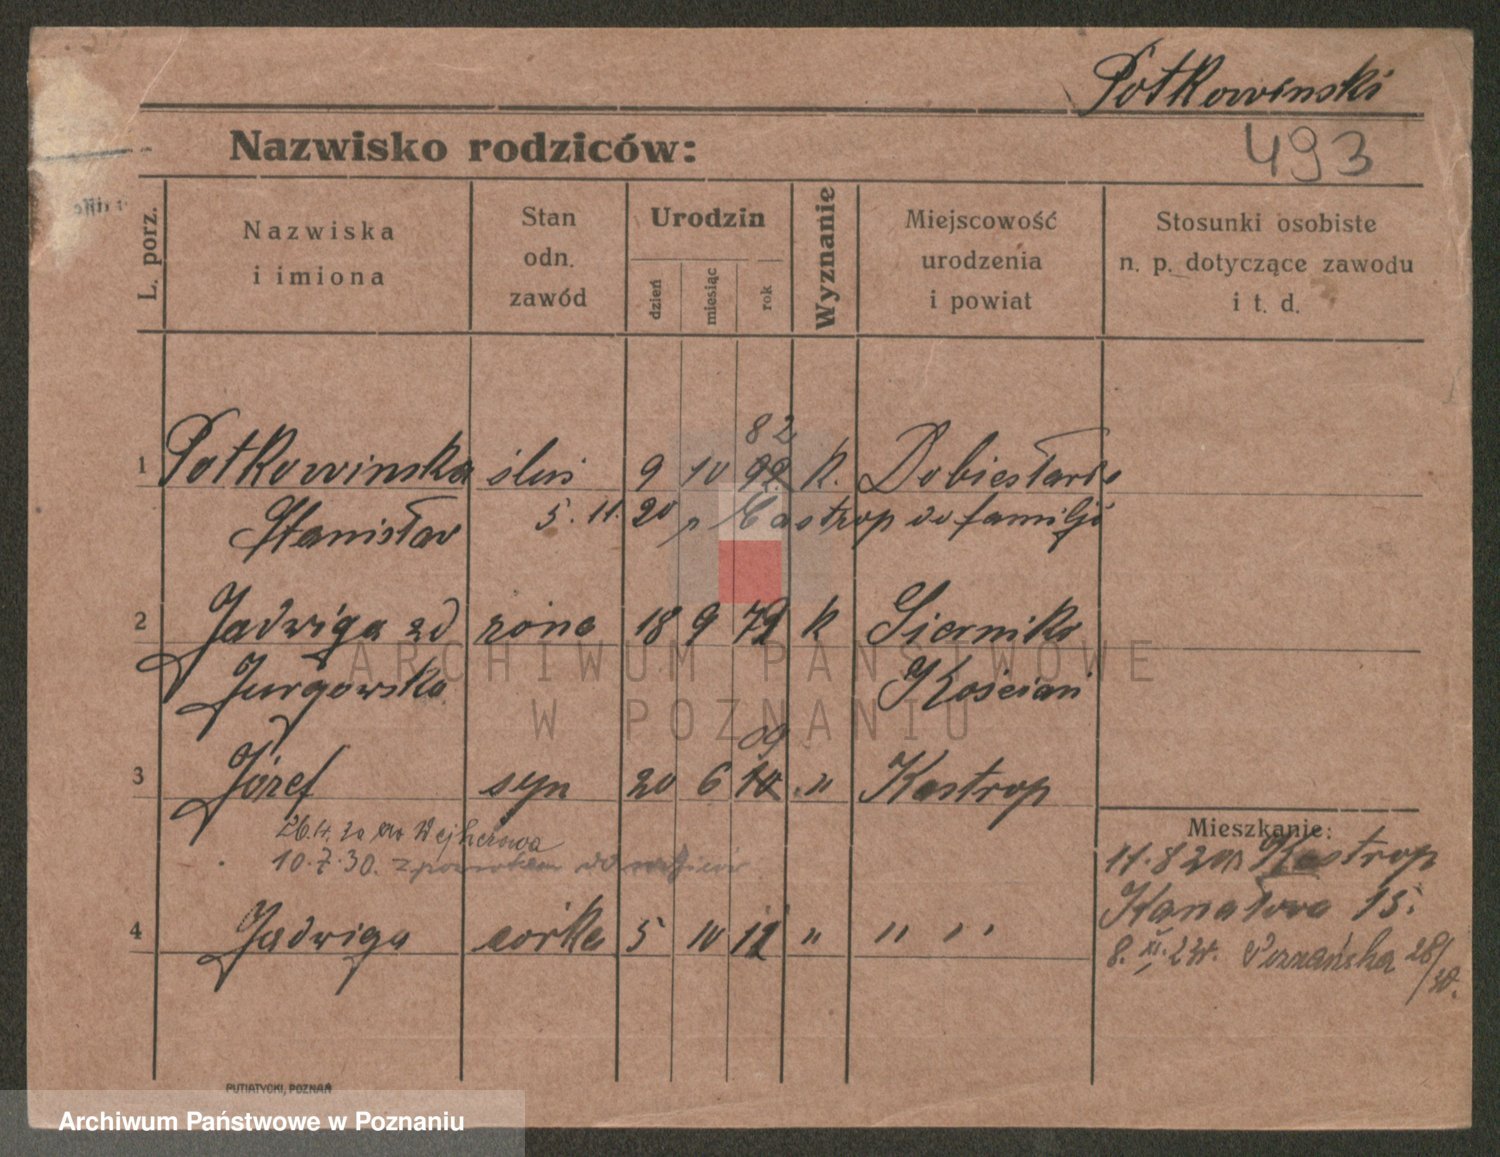 Potkowinski
493
Nazwisko rodziców:
L. porz.
Nazwiska
i imiona
Stan
odn.
zawód
Urodzin
dzień
miesiąc
rok
Wyznanie
Miejscowość
urodzenia
i powiat
Stosunki osobiste
n. p. dotyczące zawodu
i t. d.
82
1 Potkowinska ślus 9 10 k.
Stanisław 5. 11. 20 Castrop do familji
2 Jadwiga zd żona 18 9 79 k Sierniki
Jurgowska Kościan
09
3 Józef syn 20 6 10 „ Kastrop
26.4. do Wejherowa
10.7.30. z powrotem do
4 Jadwiga córka 5 10 11 „ „ „
Mieszkanie:
11.8 20 Kastrop
Kanałowa 15.
8. XI. Poznańska 28/
ARCHIWUM PAŃSTWOWE
W POZNANIU
PUTIATYCKI, POZNAŃ
Archiwum Państwowe w Poznaniu